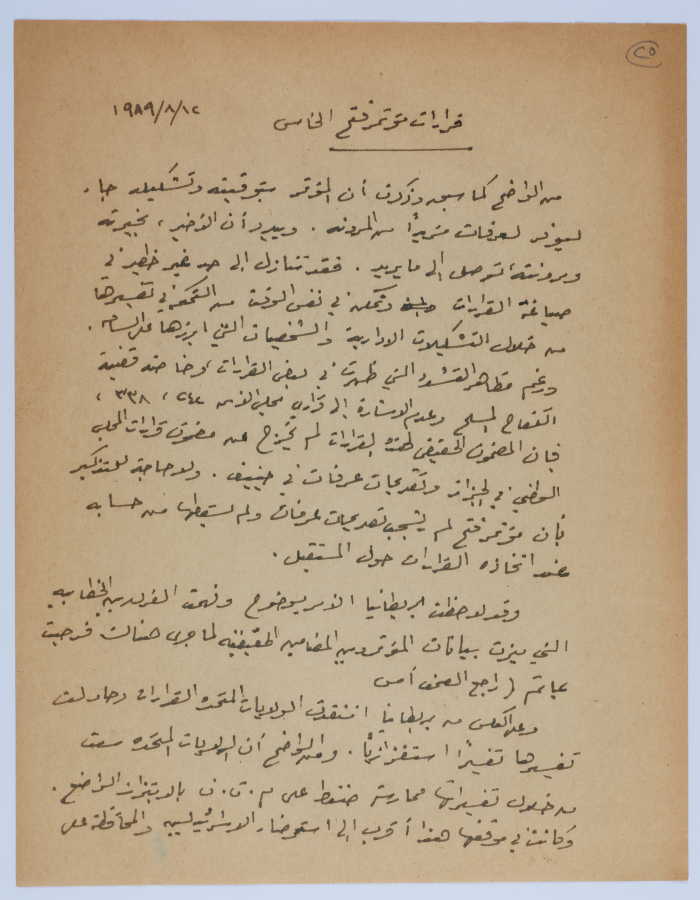 ٢٥
١٩٨٩/٨/١٢
قرارات مؤتمر فتح الخامس
من الواضح كما سبق وذكرت أن المؤتمر بتوقيته وتشكيله جاء
ليوفر لعرفات مزيداً من المرونه . ويبدو أن الأخير ، بخبرته
ومرونته، توصل الى ما يريد . فقد تنازل الى حد غير خطير في
صياغة القرارات وتمكن في نفس الوقت من التحكم في تفسيرها
من خلال التشكيلات الادارية والشخصيات التي ابرزها على السطح .
ورغم مظاهر التشدد التي ظهرت في بعض القرارات وخاصه قضية
الكفاح المسلح وعدم الاشارة الى قراري مجلس الأمن ٢٤٢ ، ٣٣٨ ،
فإن المضمون الحقيقي لهذه القرارات لم يخرج عن مضمون قرارات المجلس
الوطني في الجزائر وتصريحات عرفات في جنيف . ولا حاجة للتذكير
بأن مؤتمر فتح لم يشجب تصريحات عرفات ولم يسقطها من حسابه
عند اتخاذه القرارات حول المستقبل .
وقد لاحظت بريطانيا الأمر بوضوح وفهمت الفرق بين الخطابيه
التي ميزت بيانات المؤتمر وبين المضامين الحقيقيه لما جرى هنالك فرحبت
بما تم ( راجع الصحف أمس
وعلى العكس من بريطانيا انتقدت الولايات المتحده القرارات وحاولت
تفسيرها تفسيراً استفزازياً . ومن الواضح أن الولايات المتحده سعت
من خلال تفسيراتها ممارسة ضغط على م . ت . ف بالابتزاز الواضح .
وكانت في موقفها هذا أقرب الى استرضاء الاسرائيليين والمحافظة على